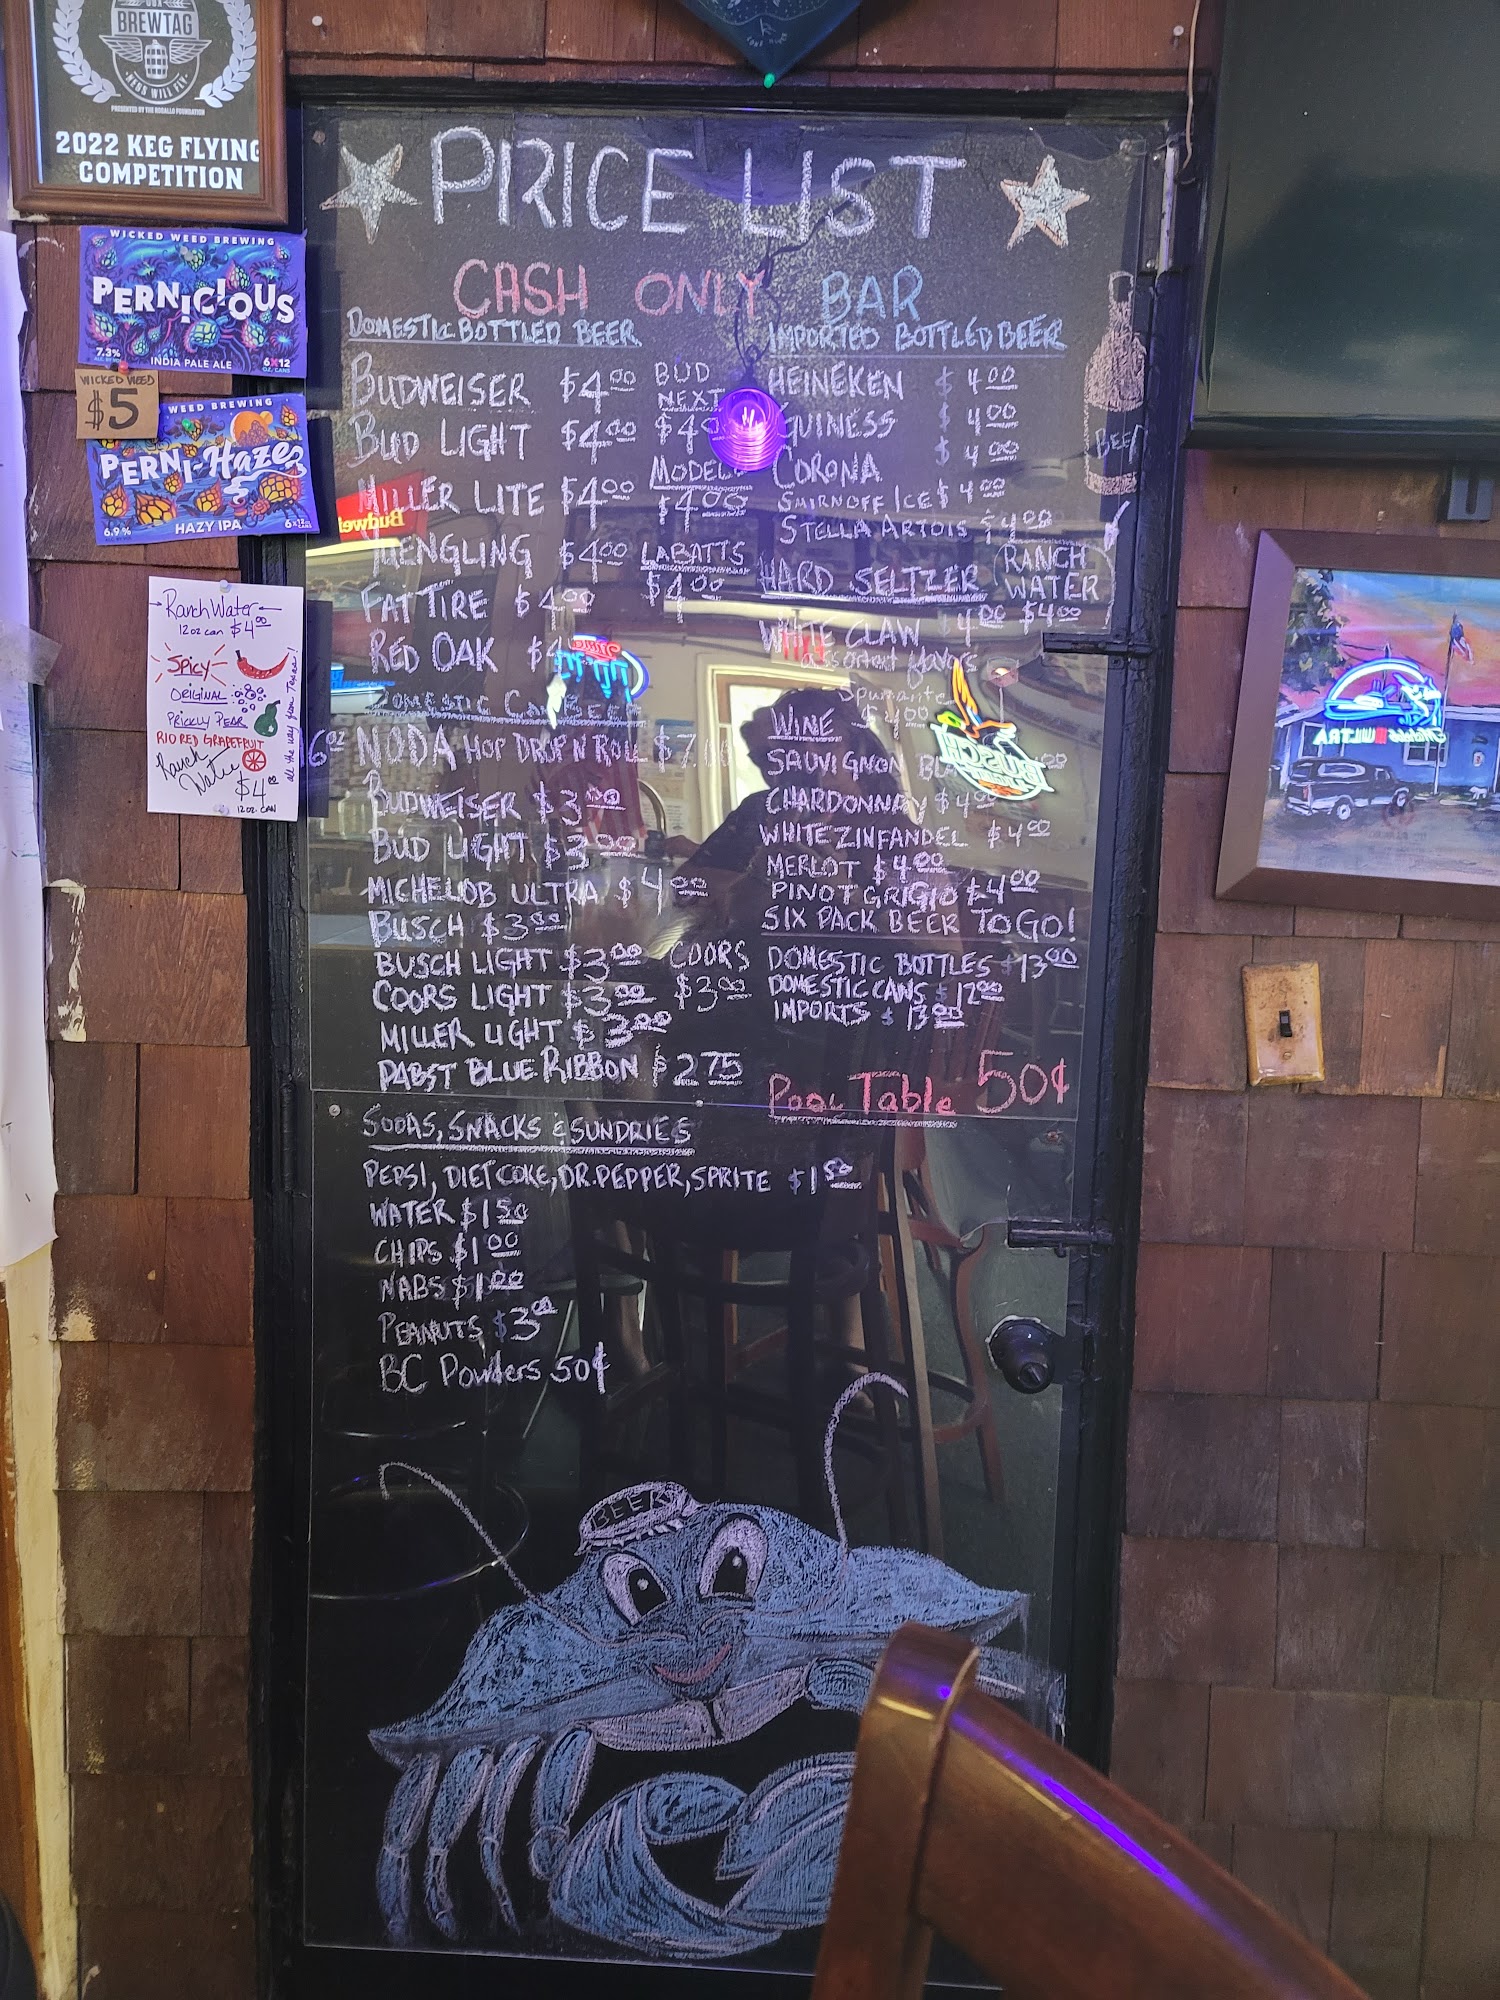 BREWTAG
KEGS WILL FLY
2022 KEG FLYING
COMPETITION
WICKED WEED BREWING
PERNICIOUS
7.3%
INDIA PALE ALE
6X12
OZ. CANS
WICKED WEED
$5
WEED BREWING
PERNI-Haze
6.9%
HAZY IPA
Ranch Water
12oz can $4.00
Spicy
ORIGINAL
PRICKLY PEAR
RIO RED GRAPEFRUIT
Ranch
Water
$4.00
12 OZ. CAN
all the way from Texas!
PRICE LIST
CASH ONLY BAR
DOMESTIC BOTTLED BEER
BUDWEISER $4.00
BUD LIGHT $4.00
MILLER LITE $4.00
YUENGLING $4.00
FAT TIRE $4.00
RED OAK $4
BUD
NEXT
$4.00
MODELO
$4.00
LABATTS
$4.00
DOMESTIC CAN BEER
16oz NODA HOP DROP N ROLL $7.00
BUDWEISER $3.00
BUD LIGHT $3.00
MICHELOB ULTRA $4.00
BUSCH $3.00
BUSCH LIGHT $3.00
COORS LIGHT $3.00
COORS
$3.00
MILLER LIGHT $3.00
PABST BLUE RIBBON $2.75
IMPORTED BOTTLED BEER
HEINEKEN $4.00
GUINESS $4.00
CORONA $4.00
SMIRNOFF ICE $4.00
STELLA ARTOIS $4.00
BEER
HARD SELTZER
RANCH
WATER
$4.00
WHITE CLAW 4.00
assorted flavors
WINE
Spumante
$4.00
SAUVIGNON
CHARDONNAY $4.00
WHITE ZINFANDEL $4.00
MERLOT $4.00
PINOT GRIGIO $4.00
SIX PACK BEER TO GO!
DOMESTIC BOTTLES $13.00
DOMESTIC CANS $12.00
IMPORTS $13.00
Pool Table 50¢
SODAS, SNACKS & SUNDRIES
PEPSI, DIET COKE, DR. PEPPER, SPRITE $1.50
WATER $1.50
CHIPS $1.00
NABS $1.00
PEANUTS $3.00
BC Powders 50¢
BEER
BUSCH
ULTRA